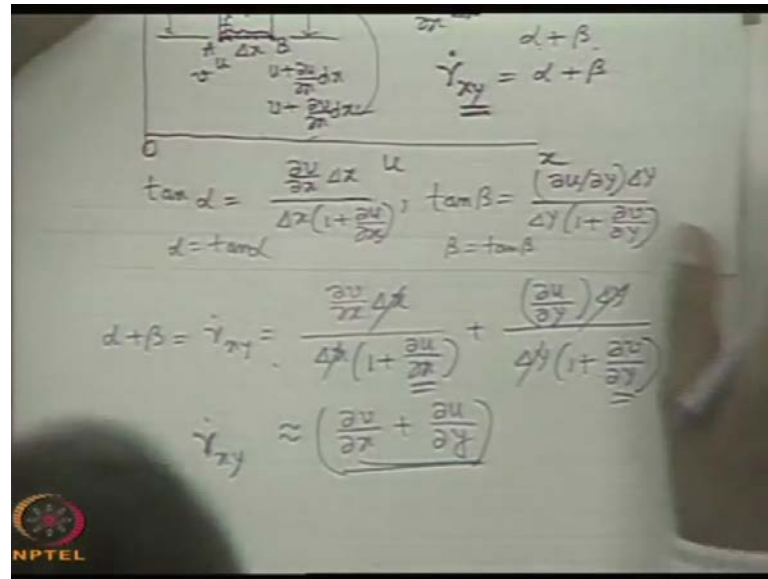 A Δx B
v u u + ∂u/∂x dx
v + ∂v/∂x dx
α + β
γ̇xy = α + β
O u x
tan α = (∂v/∂x Δx) / (Δx(1 + ∂u/∂x)) , tan β = ((∂u/∂y)Δy) / (Δy(1 + ∂v/∂y))
α = tan α β = tan β
α + β = γ̇xy = (∂v/∂x Δx) / (Δx(1 + ∂u/∂x)) + ((∂u/∂y)Δy) / (Δy(1 + ∂v/∂y))
γ̇xy ≈ (∂v/∂x + ∂u/∂y)
NPTEL